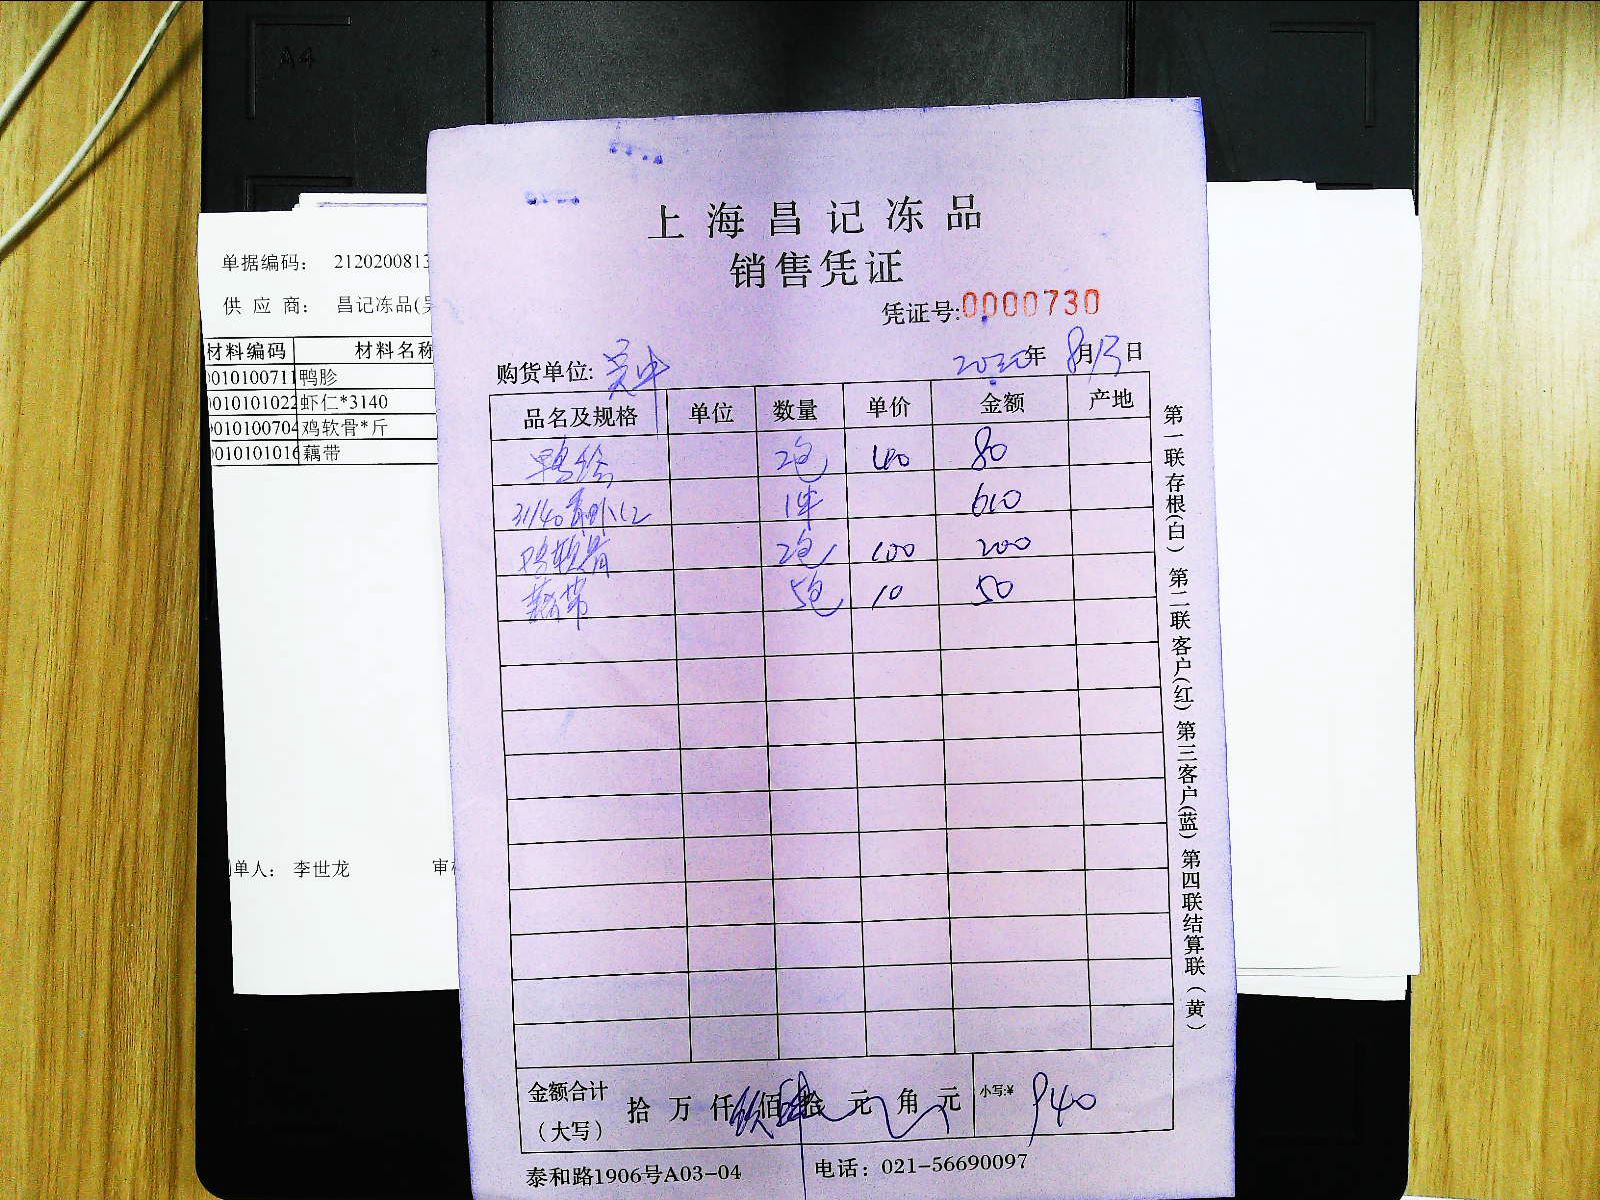 A4
上海昌记冻品
销售凭证
凭证号:0000730
单据编码： 2120200813
供 应 商： 昌记冻品(吴
材料编码 材料名称
0010100711 鸭胗
0010101022 虾仁*3140
0010100704 鸡软骨*斤
0010101016 藕带
单人： 李世龙 审
购货单位: 吴中 2020年 8月13日
品名及规格 单位 数量 单价 金额 产地
鸭胗 2包 40 80
31/40 虾仁 1件 610
鸡软骨 2包 100 200
藕带 5包 10 50
金额合计
(大写)
拾 万 仟 玖佰 肆拾 元 角 元 小写:¥ 940
泰和路1906号A03-04 电话：021-56690097
第一联存根(白) 第二联客户(红) 第三客户(蓝) 第四联结算联(黄)